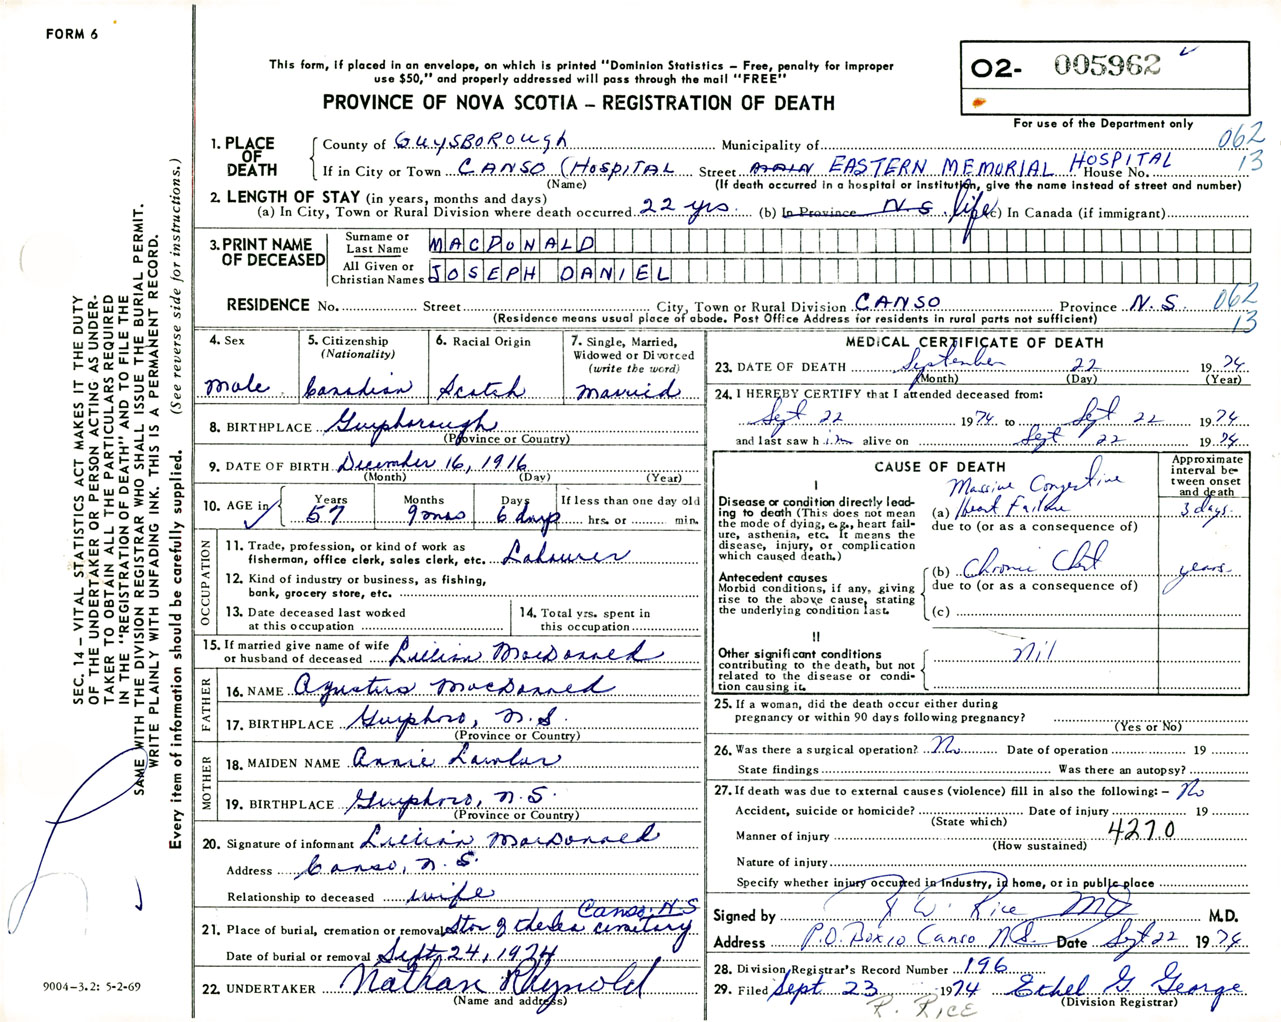 FORM 6
This form, if placed in an envelope, on which is printed "Dominion Statistics – Free, penalty for improper
use $50," and properly addressed will pass through the mail "FREE"
PROVINCE OF NOVA SCOTIA – REGISTRATION OF DEATH
O2- 005962
For use of the Department only
062
13
1. PLACE OF DEATH
County of GUYSBOROUGH Municipality of
If in City or Town CANSO (HOSPITAL Street MAIN EASTERN MEMORIAL HOSPITAL House No.
(Name) (If death occurred in a hospital or institution, give the name instead of street and number)
2. LENGTH OF STAY (in years, months and days)
(a) In City, Town or Rural Division where death occurred 22 yrs. (b) In Province N S life (c) In Canada (if immigrant)
3. PRINT NAME OF DECEASED
Surname or Last Name MACDONALD
All Given or Christian Names JOSEPH DANIEL
RESIDENCE No. Street City, Town or Rural Division CANSO Province N.S.
062
13
(Residence means usual place of abode. Post Office Address for residents in rural parts not sufficient)
4. Sex
Male
5. Citizenship
(Nationality)
Canadian
6. Racial Origin
Scotch
7. Single, Married,
Widowed or Divorced
(write the word)
Married
8. BIRTHPLACE Guysborough
(Province or Country)
9. DATE OF BIRTH December 16, 1916
(Month) (Day) (Year)
10. AGE in
Years 57
Months 9 mos
Days 6 days
If less than one day old
hrs. or min.
OCCUPATION
11. Trade, profession, or kind of work as
fisherman, office clerk, sales clerk, etc. Labourer
12. Kind of industry or business, as fishing,
bank, grocery store, etc.
13. Date deceased last worked
at this occupation
14. Total yrs. spent in
this occupation
15. If married give name of wife
or husband of deceased Lillian MacDonald
FATHER
16. NAME Agustus MacDonald
17. BIRTHPLACE Guysboro, N.S.
(Province or Country)
MOTHER
18. MAIDEN NAME Annie Lawlor
19. BIRTHPLACE Guysboro, N.S.
(Province or Country)
20. Signature of informant Lillian MacDonald
Address Canso, N.S.
Relationship to deceased wife
21. Place of burial, cremation or removal Star of the Sea cemetary Canso. N.S
Date of burial or removal Sept. 24, 1974
22. UNDERTAKER Nathan Raynold
(Name and address)
MEDICAL CERTIFICATE OF DEATH
23. DATE OF DEATH September 22 19 74
(Month) (Day) (Year)
24. I HEREBY CERTIFY that I attended deceased from:
Sept 22 1974 to Sept 22 1974
and last saw him alive on Sept 22 1974
CAUSE OF DEATH
Approximate
interval be-
tween onset
and death
I
Disease or condition directly lead-
ing to death (This does not mean
the mode of dying, e.g., heart fail-
ure, asthenia, etc. It means the
disease, injury, or complication
which caused death.)
Massive Congestive
(a) Heart Failure 3 days
due to (or as a consequence of)
Antecedent causes
Morbid conditions, if any, giving
rise to the above cause, stating
the underlying condition last.
(b) Chronic years
due to (or as a consequence of)
(c)
II
Other significant conditions
contributing to the death, but not
related to the disease or condi-
tion causing it.
Nil
25. If a woman, did the death occur either during
pregnancy or within 90 days following pregnancy?
(Yes or No)
26. Was there a surgical operation? No Date of operation 19
State findings Was there an autopsy?
27. If death was due to external causes (violence) fill in also the following: – No
Accident, suicide or homicide? Date of injury 19
(State which)
Manner of injury 4270
(How sustained)
Nature of injury
Specify whether injury occurred in industry, in home, or in public place
Signed by R W. Rice MD M.D.
Address P.O. Box 10 Canso N.S. Date Sept 22 1974
28. Division Registrar's Record Number 196
29. Filed Sept 23 1974 Ethel G. George
(Division Registrar)
R. RICE
SEC. 14 – VITAL STATISTICS ACT MAKES IT THE DUTY
OF THE UNDERTAKER OR PERSON ACTING AS UNDER-
TAKER TO OBTAIN ALL THE PARTICULARS REQUIRED
IN THE "REGISTRATION OF DEATH" AND TO FILE THE
SAME WITH THE DIVISION REGISTRAR WHO SHALL ISSUE THE BURIAL PERMIT.
WRITE PLAINLY WITH UNFADING INK. THIS IS A PERMANENT RECORD.
Every item of information should be carefully supplied. (See reverse side for instructions.)
9004-3.2: 5-2-69